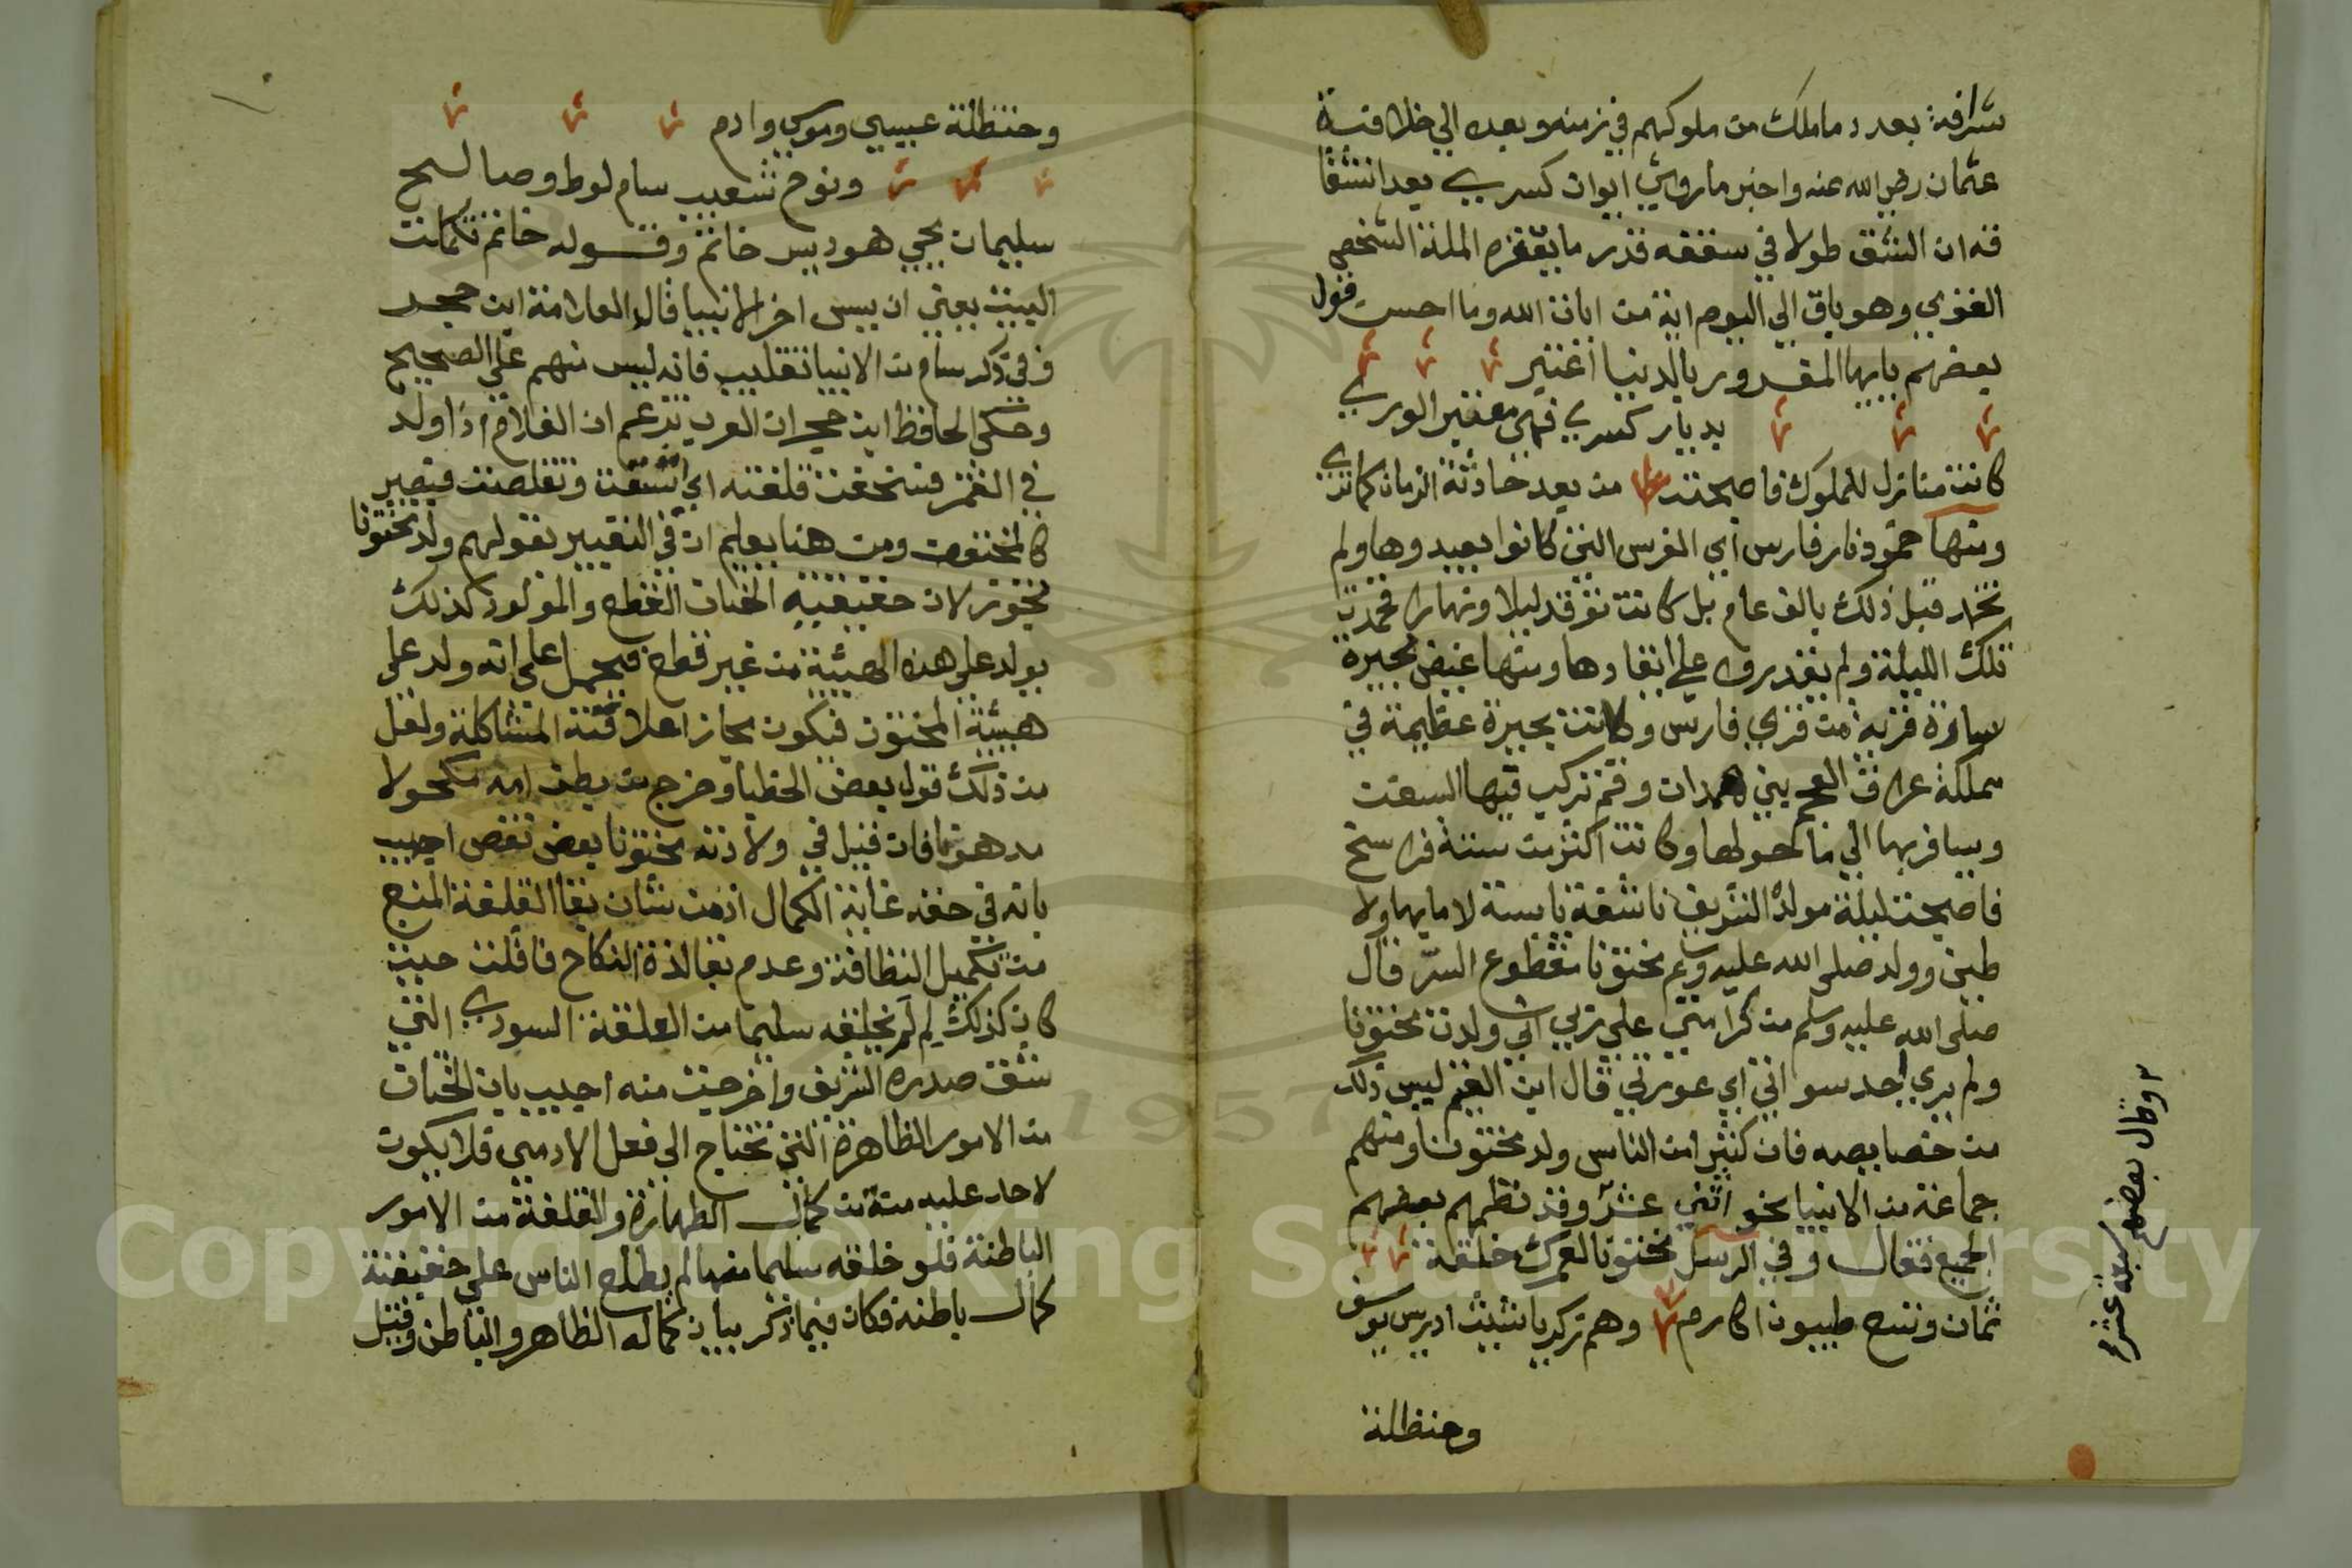 شرافة بعدد ما ملك من ملوكهم في زمنه وبعده الي خلافة
عثمان رضي الله عنه واخبر ما رويي ايوان كسري بعد انشقا
قه ان الشق طولا في سقفه قدر ما يقفزه الملة الشخص
القوي وهو باق الي اليوم اية من ايات الله وما احسن قول
بعضهم يا ايها المغرور بالدنيا اعتبر
بديار كسري فهي معتبر الوري
كانت منازل للملوك فاصبحت من بعد حادثة الزمان كما تري
ومنها خمود نار فارس اي الفرس التي كانوا يعبدوها ولم
تخمد قبل ذلك بالف عام بل كانت توقد ليلا ونهارا فخمدت
تلك الليلة ولم يقدروا علي ايقادها ومنها غيض بحيرة
ساوة قرية من قري فارس وكانت بحيرة عظيمة في
مملكة عراق العجم بين همدان وقم تركب فيها السفن
ويسافر بها الي ما حولها وكانت اكثر من ستة فراسخ
فاصبحت ليلة مولده الشريف ناشفة يابسة لا ما بها ولا
طين وولد صلى الله عليه وسلم مختونا مقطوع السر قال
صلى الله عليه وسلم من كرامتي علي ربي اني ولدت مختونا
ولم يري احد سواتي اي عورتي قال ابن القيم ليس ذلك
من خصايصه فان كثيرا من الناس ولد مختونا ومنهم
جماعة من الانبيا نحو اثني عشر وقد نظمهم بعضهم
الجميع فقال وفي الرسل مختونا لعمرك خلقة
ثمان وتسع طيبون اكارم وهم زكريا شيث ادريس يوسف
وحنظلة
٢ وقال بعضهم سبعة عشر
وحنظلة عيسي وموسي وادم
ونوح شعيب سام لوط وصالح
سليمان يحي هود يس خاتم وقوله خاتم تكملت
البيت يعني ان يس اخر الانبيا قال العلامة ابن حجر
وفي ذكر سام من الانبيا تغليب فانه ليس منهم علي الصحيح
وحكي الحافظ ابن حجر ان العرب تزعم ان الغلام اذا ولد
في القمر فسخت قلفته اي اتسعت وتقلصت فيصير
كالمختون ومن هنا يعلم ان في التعبير بقولهم ولد مختونا
تجوز لان حقيقية الختان القطع والمولود كذلك
يولد علي هذه الهيئة من غير قطع فيحمل علي انه ولد علي
هيئة المختون فيكون مجازا علاقته المشاكلة ولعل
من ذلك قول بعض الخطبا وخرج من بطن امه مكحولا
مدهونا فان قيل في ولادته مختونا بعض نقص اجيب
بانه في حقه غاية الكمال اذ من شان بقا القلفة المنع
من تكميل النظافة وعدم بقا لذة النكاح فان قلت حيث
كان كذلك لم لم يخلقه سليما من العلقة السودي التي
شق صدره الشريف واخرجت منه اجيب بان الختان
من الامور الظاهرة التي تحتاج الي فعل الادمي فلا يكون
لاحد عليه منة من كمال الطهارة والقلفة من الامور
الباطنة فلو خلقه سليما منها لم يطلع الناس علي حقيقة
كمال باطنه فكان فيما ذكر بيان كماله الظاهر والباطن وقيل